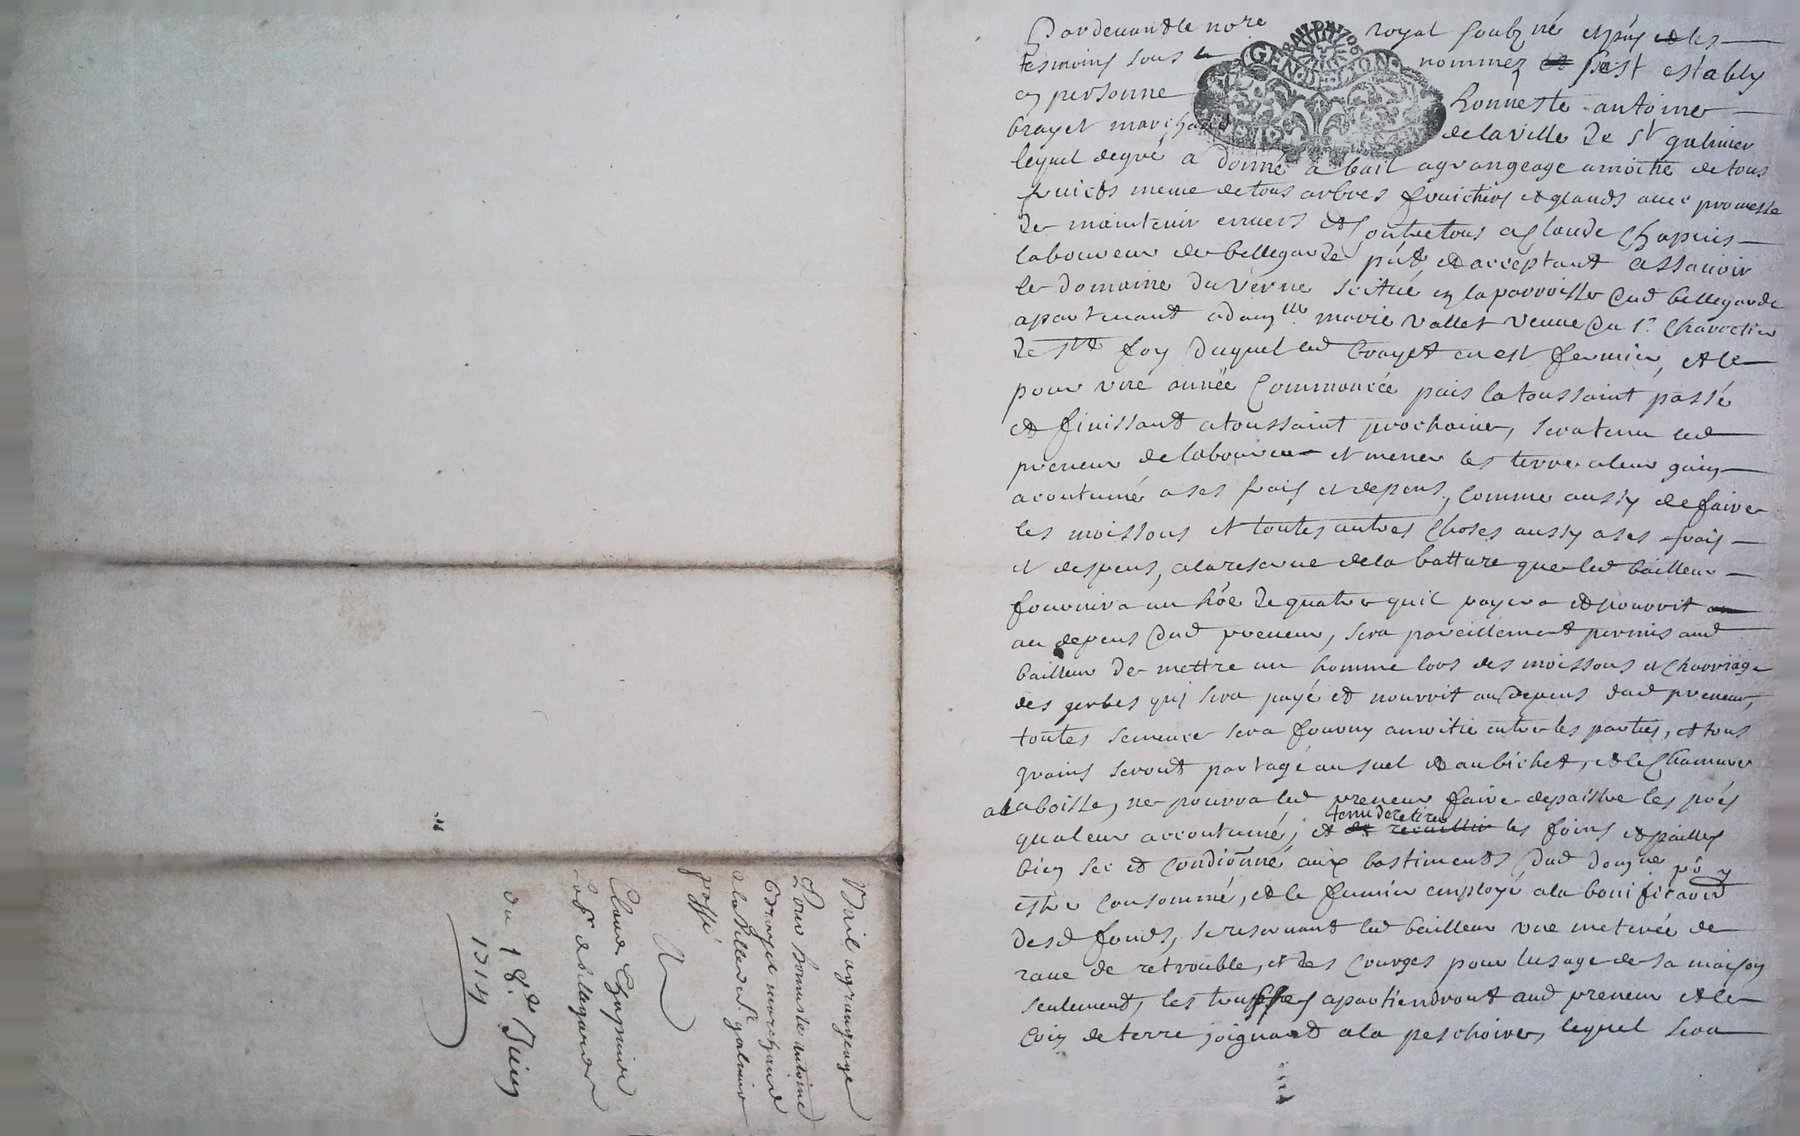 Pardevant le no.re royal soubz né et pñs et les
tesmoins sous le nommez et s'est estably
en personne honneste antoine
brayet marchand de la ville de St galmier
lequel de gré a donné a bail a grangeage a moitié de tous
fruicts meme de tous arbres fruictiers et glands avec promesse
de maintenir envers et contre tous a glaude Chapuis
laboureur de bellegarde pñt et acceptant assavoir
le domaine du verne scitué en la parroisse dud bellegarde
apartenant a dam.lle marie vallet veuve du s.r
de s.te foy duquel led brayet en est fermier, et le
pour une année Commoncée puis la toussaint passé
et finissant a toussaint prochaine, sera tenu led
preneur de labourer et mener les terre a leur gain
acoutumé a ses frais et depens, Comme aussy de faire
les moissons et toutes autres choses aussy a ses frais
et despens, a la reserve de la batture que led bailleur
fournira un hõe de quatre quil payera et nourrit an
au depens dud preneur, sera pareillement permis aud
bailleur de mettre un homme lors des moissons et charriage
des gerbes qui sera payé et nourrit au depens dud preneur,
toutes semence sera fourny a moitié entre les parties, et tous
grains seront partagé au suel et au bichet, et le Chanvre
a la boisse, ne pourra led preneur faire depaistre les prés
qualeur accoutumé; et de recuillir tenu de retirer les foins et pailles
bien sec et condionné aux bastiments dud dom.ne po.r y
estre consommé, et le fumier employé a la bonificaon
desd fonds, se reservant led bailleur une meterée de
rave de retrouble, et des Courges pour lusage de sa maison
seulement, les apartiendront aud preneur et le
Coin de terre joignant a la peschoire, lequel sera
Bail a grangeage
Pour honneste antoine
Brayet marchand
de la Ville de St galmier
passé
A
Claude Chapuis
Lab.r de bellegarde
du 18.e Juin
1714
GEN·DE·LION